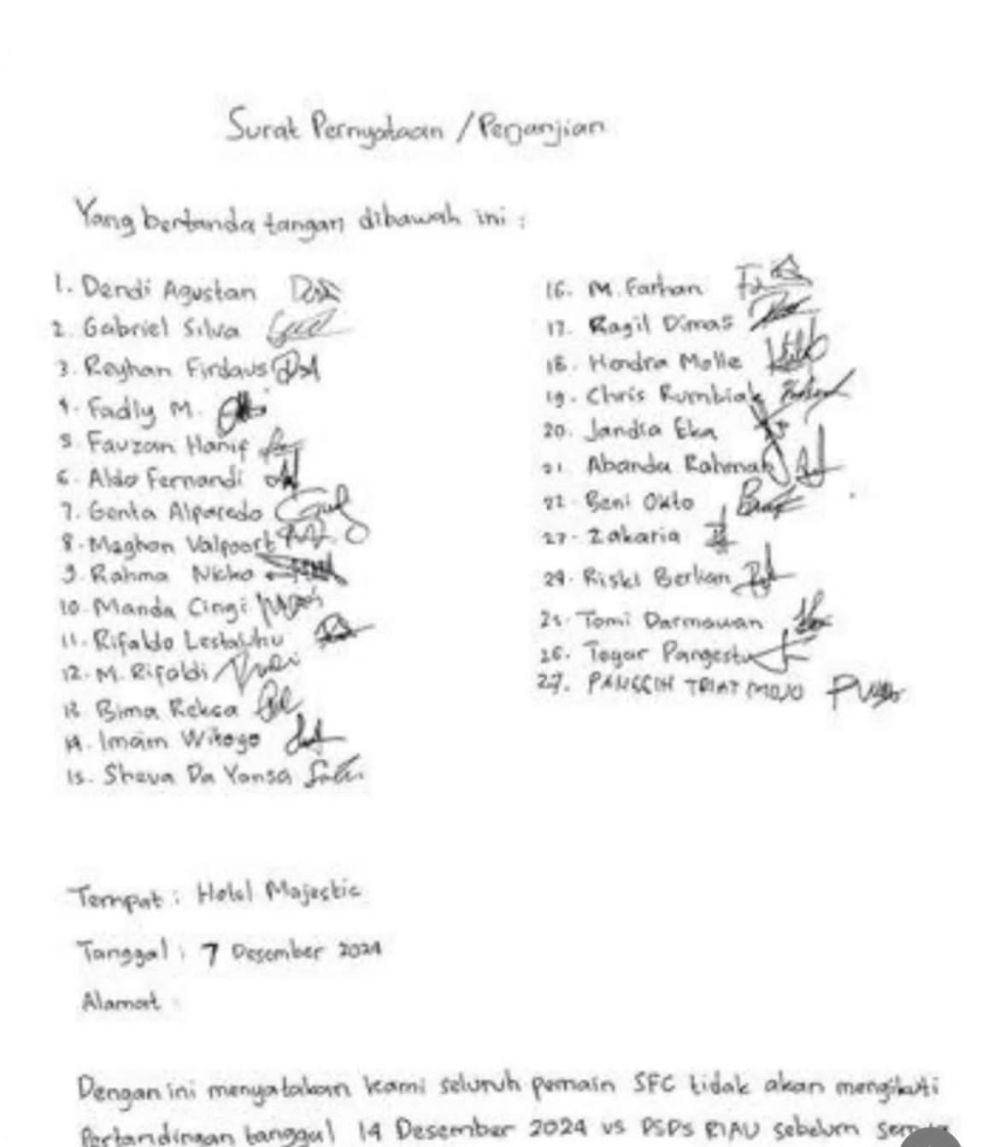 Surat Pernyataan / Perjanjian
Yang bertanda tangan dibawah ini :
1. Dendi Agustan
2. Gabriel Silva
3. Reyhan Firdaus
4. Fadly M.
5. Fauzan Hanif
6. Aldo Fernandi
7. Genta Alparedo
8. Maghon Valpoort
9. Rahma Nicko
10. Manda Cingi
11. Rifaldo Lestaluhu
12. M. Rifaldi
13. Bima Reksa
14. Imam Witogo
15. Sheva Da Yonsa
16. M. Farhan
17. Ragil Dimas
18. Hendra Molle
19. Chris Rumbiak
20. Jandia Eka
21. Abanda Rahman
22. Beni Okto
23. Zakaria
24. Riski Berlian
25. Tomi Darmawan
26. Tegar Pangestu
27. PANGGIH TRIATMOJO
Tempat : Hotel Majestic
Tanggal : 7 Desember 2024
Alamat :
Dengan ini menyatakan kami seluruh pemain SFC tidak akan mengikuti
Pertandingan tanggal 14 Desember 2024 vs PSPS RIAU sebelum